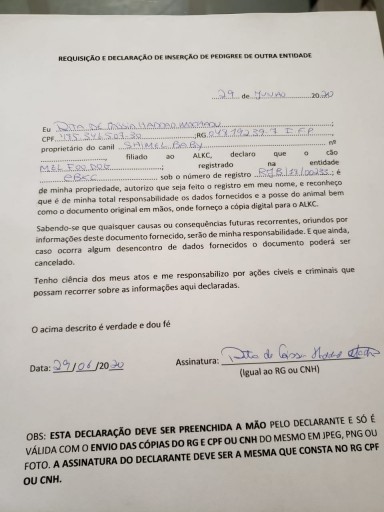 REQUISIÇÃO E DECLARAÇÃO DE INSERÇÃO DE PEDIGREE DE OUTRA ENTIDADE
29 de JUNHO 2020
Eu RITA DE CASSIA HADDAD
CPF ;RG
proprietário do canil SHIMEL BABY nº
filiado ao ALKC, declaro que o cão
MEL FOO DOG ; registrado na entidade
CBKC sob o número de registro ; é
de minha propriedade, autorizo que seja feito o registro em meu nome, e reconheço
que é de minha total responsabilidade os dados fornecidos e a posse do animal bem
como o documento original em mãos, onde forneço a cópia digital para o ALKC.
Sabendo-se que quaisquer causas ou consequências futuras recorrentes, oriundos por
informações deste documento fornecido, serão de minha responsabilidade. E que ainda,
caso ocorra algum desencontro de dados fornecidos o documento poderá ser
cancelado.
Tenho ciência dos meus atos e me responsabilizo por ações cíveis e criminais que
possam recorrer sobre as informações aqui declaradas.
O acima descrito é verdade e dou fé
Data: 29/06/2020 Assinatura: Rita de Cassia
(Igual ao RG ou CNH)
OBS: ESTA DECLARAÇÃO DEVE SER PREENCHIDA A MÃO PELO DECLARANTE E SÓ É
VÁLIDA COM O ENVIO DAS CÓPIAS DO RG E CPF OU CNH DO MESMO EM JPEG, PNG OU
FOTO. A ASSINATURA DO DECLARANTE DEVE SER A MESMA QUE CONSTA NO RG CPF
OU CNH.